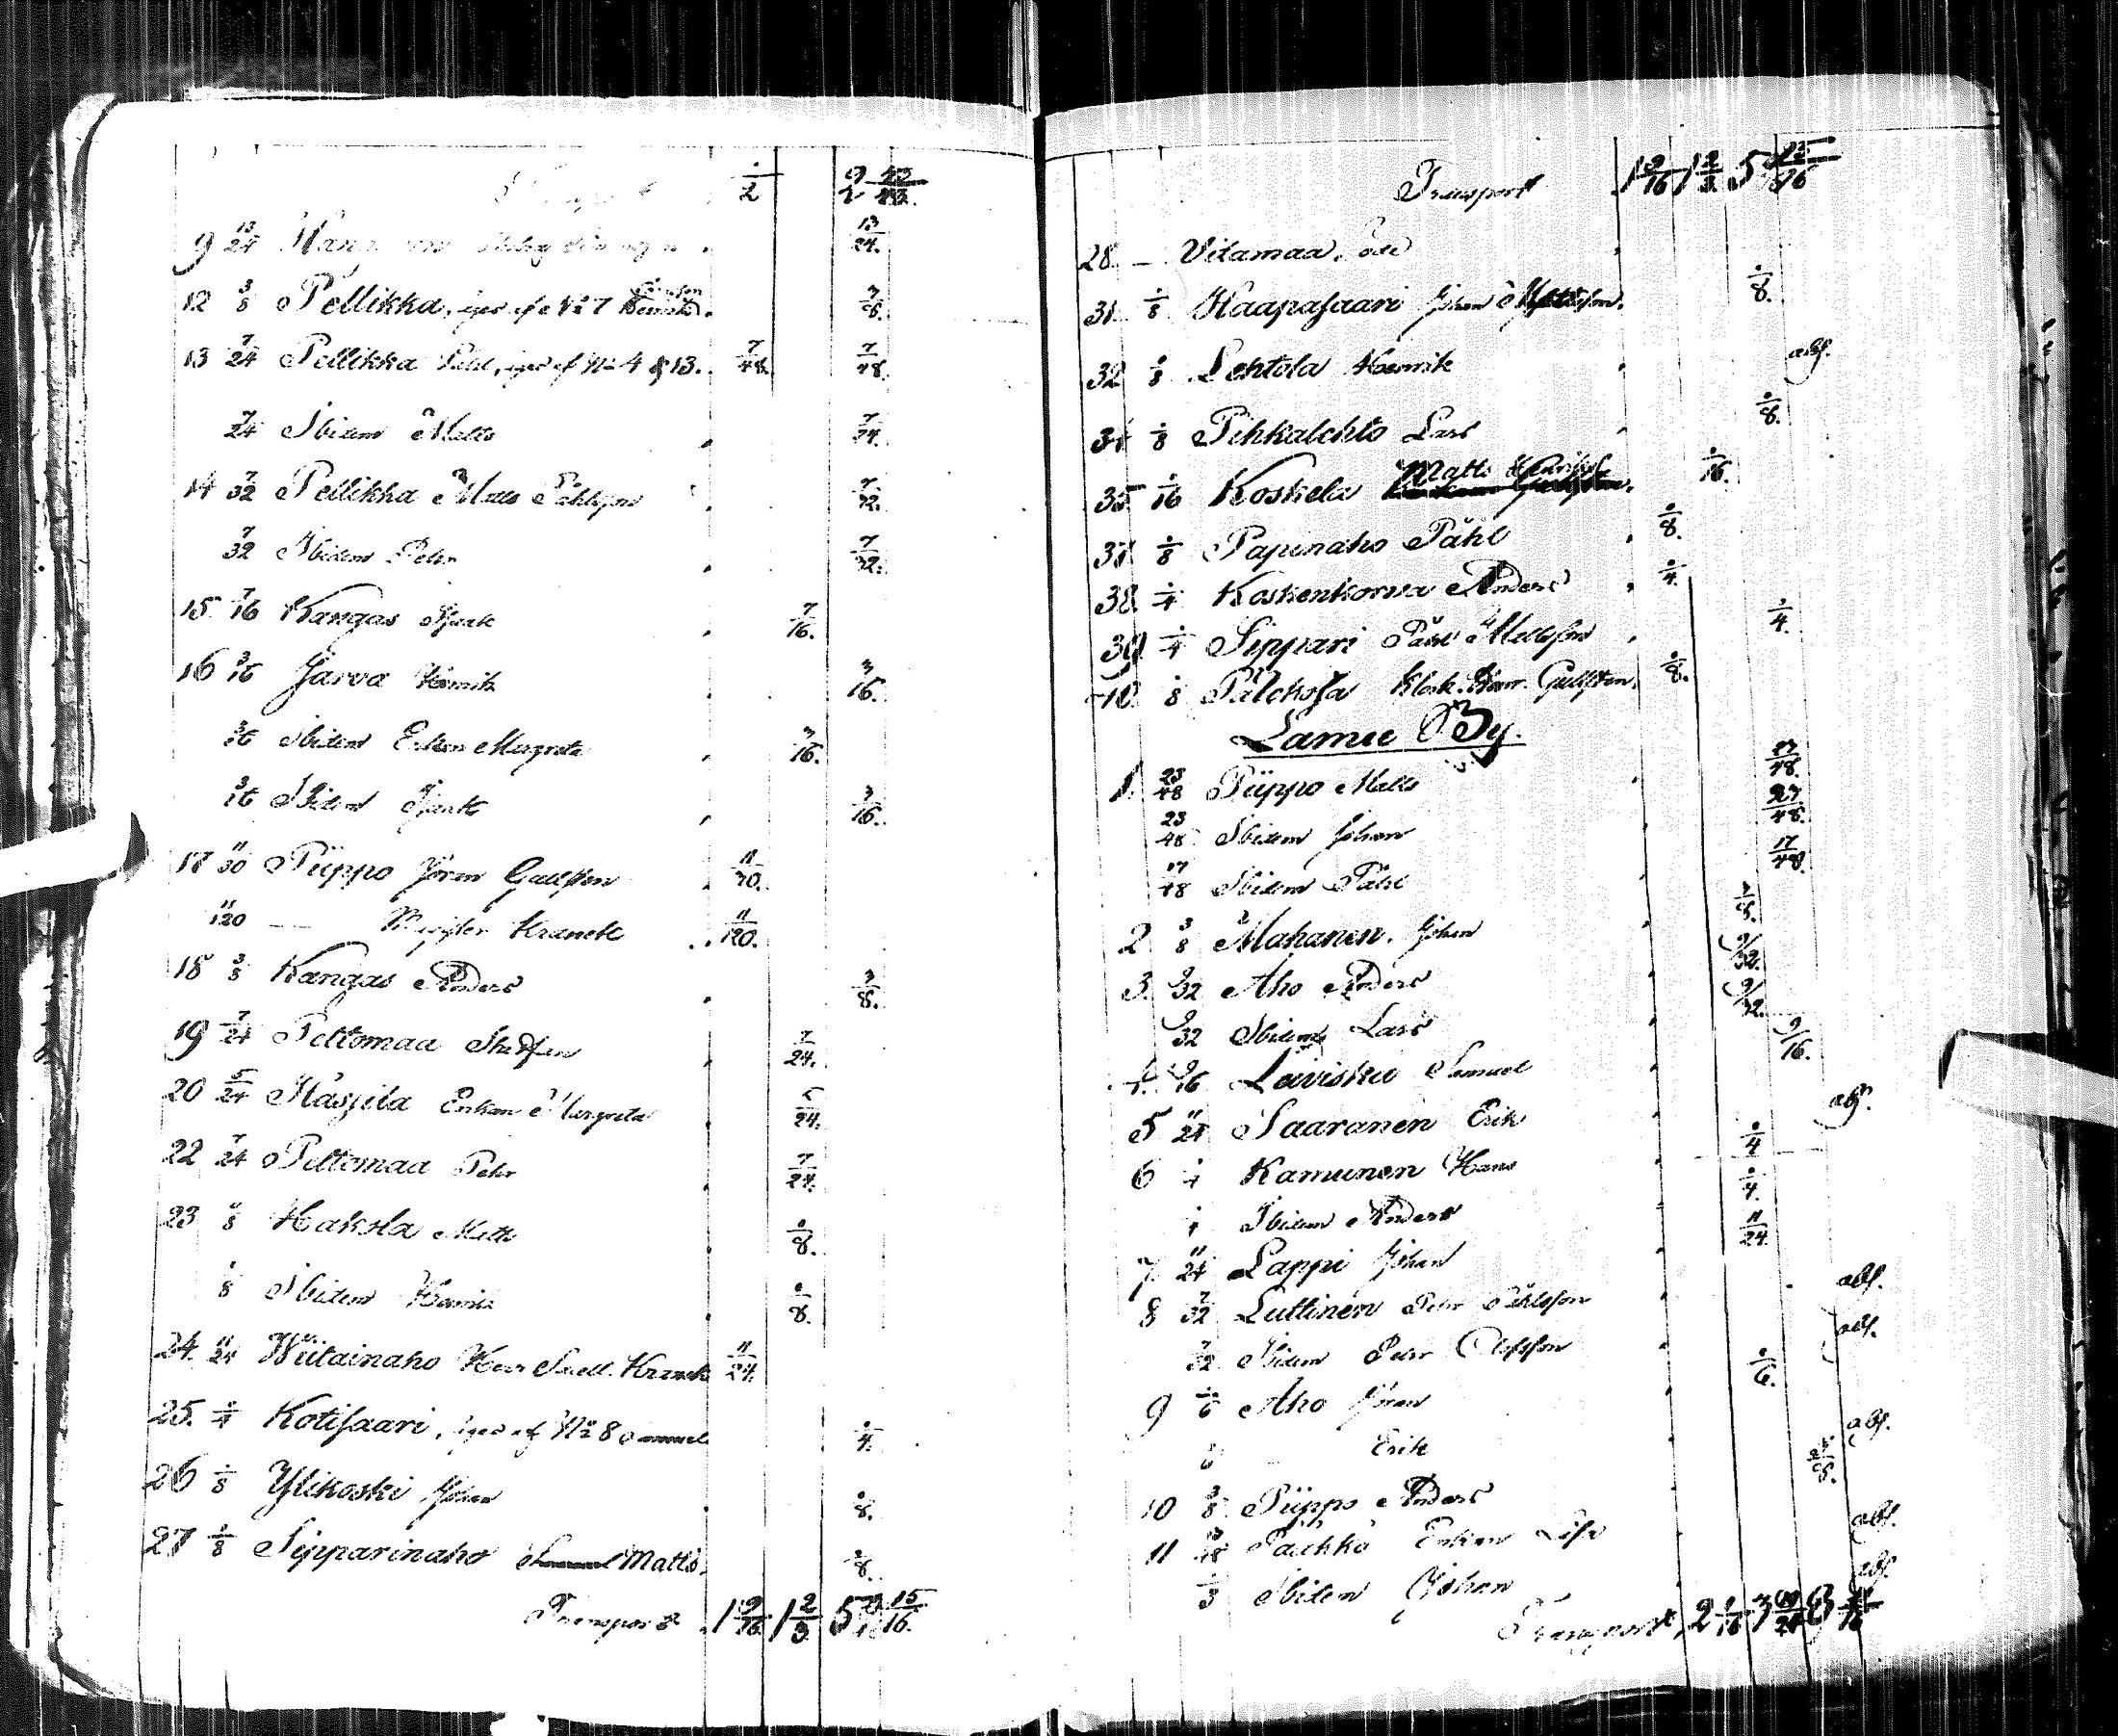 9 13/24 13/24.
12 3/8 Pellikka, eges af No 7 3/8.
13 7/24 Pellikka Påhl, eges af No 4 & 13. 7/48. 7/48.
7/24 Ibidem Matts 7/24.
14 7/32 Pellikka Matts Påhlsson 7/32.
7/32 Ibidem Petter 7/32.
15 7/16 Kangas Isaak 7/16.
16 3/16 Järvä Henrik 3/16.
3/16 Ibidem Enkan Margreta 3/16.
3/16 Ibidem Isaak 3/16.
17 11/30 Piippo Jöran Gallsten 11/30.
11/120 — Kranck 11/120.
18 3/8 Kangas Anders 3/8.
19 7/24 Peltomaa Staffan 7/24.
20 5/24 Enkan Margreta 5/24.
22 7/24 Peltomaa Pehr 7/24.
23 1/8 Hakola Matts 1/8.
1/8 Ibidem Henrik 1/8.
24. 11/24 Wiitainaho Kranck 11/24.
25. 1/4 Kotisaari, eges af No 8 1/4.
26 1/8 Ylikoski Johan 1/8.
27 1/8 Sipparinaho Matts. 1/8.
Transport 1 9/16 1 2/3 5 15/16.
Transport 1 9/16 1 2/3 5 15/16
28. — Vitamaa, öde
31. 1/8 Haapasaari Johan Mattsson. 1/8.
32 1/8 Lehtola Henrik abs.
34 1/8 Pihkalehto Lars 1/8.
35 1/16 Koskela Matts 1/16.
37 1/8 Papinaho Påhl 1/8.
38 1/4 Koskenkorva Anders 1/4.
39 1/4 Sippari Påhl Mattsson 1/4.
40 1/8 Gallsten. 1/8.
Lamu By.
1. 23/48 Piippo Matts 23/48.
23/48 Ibidem Johan 23/48.
17/48 Ibidem Påhl 17/48.
2 3/8 Mahanen. Johan 3/8.
3. 9/32 Aho Anders 9/32.
9/32 Ibidem Lars 9/32.
4. 9/16 Leiviskä Samuel 9/16.
5 11/24 Saaranen Erik abs.
6 1/4 Kamunen Hans 1/4
1/4 Ibidem Anders 1/4.
7. 11/24 Lappi Johan 11/24.
8 7/32 Luttinen Pehr Påhlsson abs.
7/32 Ibidem Pehr Olofsson abs.
9 1/6 Aho Jöran 1/6.
1/6 — Erik abs.
10 3/8 Piippo Anders 3/8.
11 Enkan Lisa abs.
1/3 Ibidem Johan abs.
Transport,